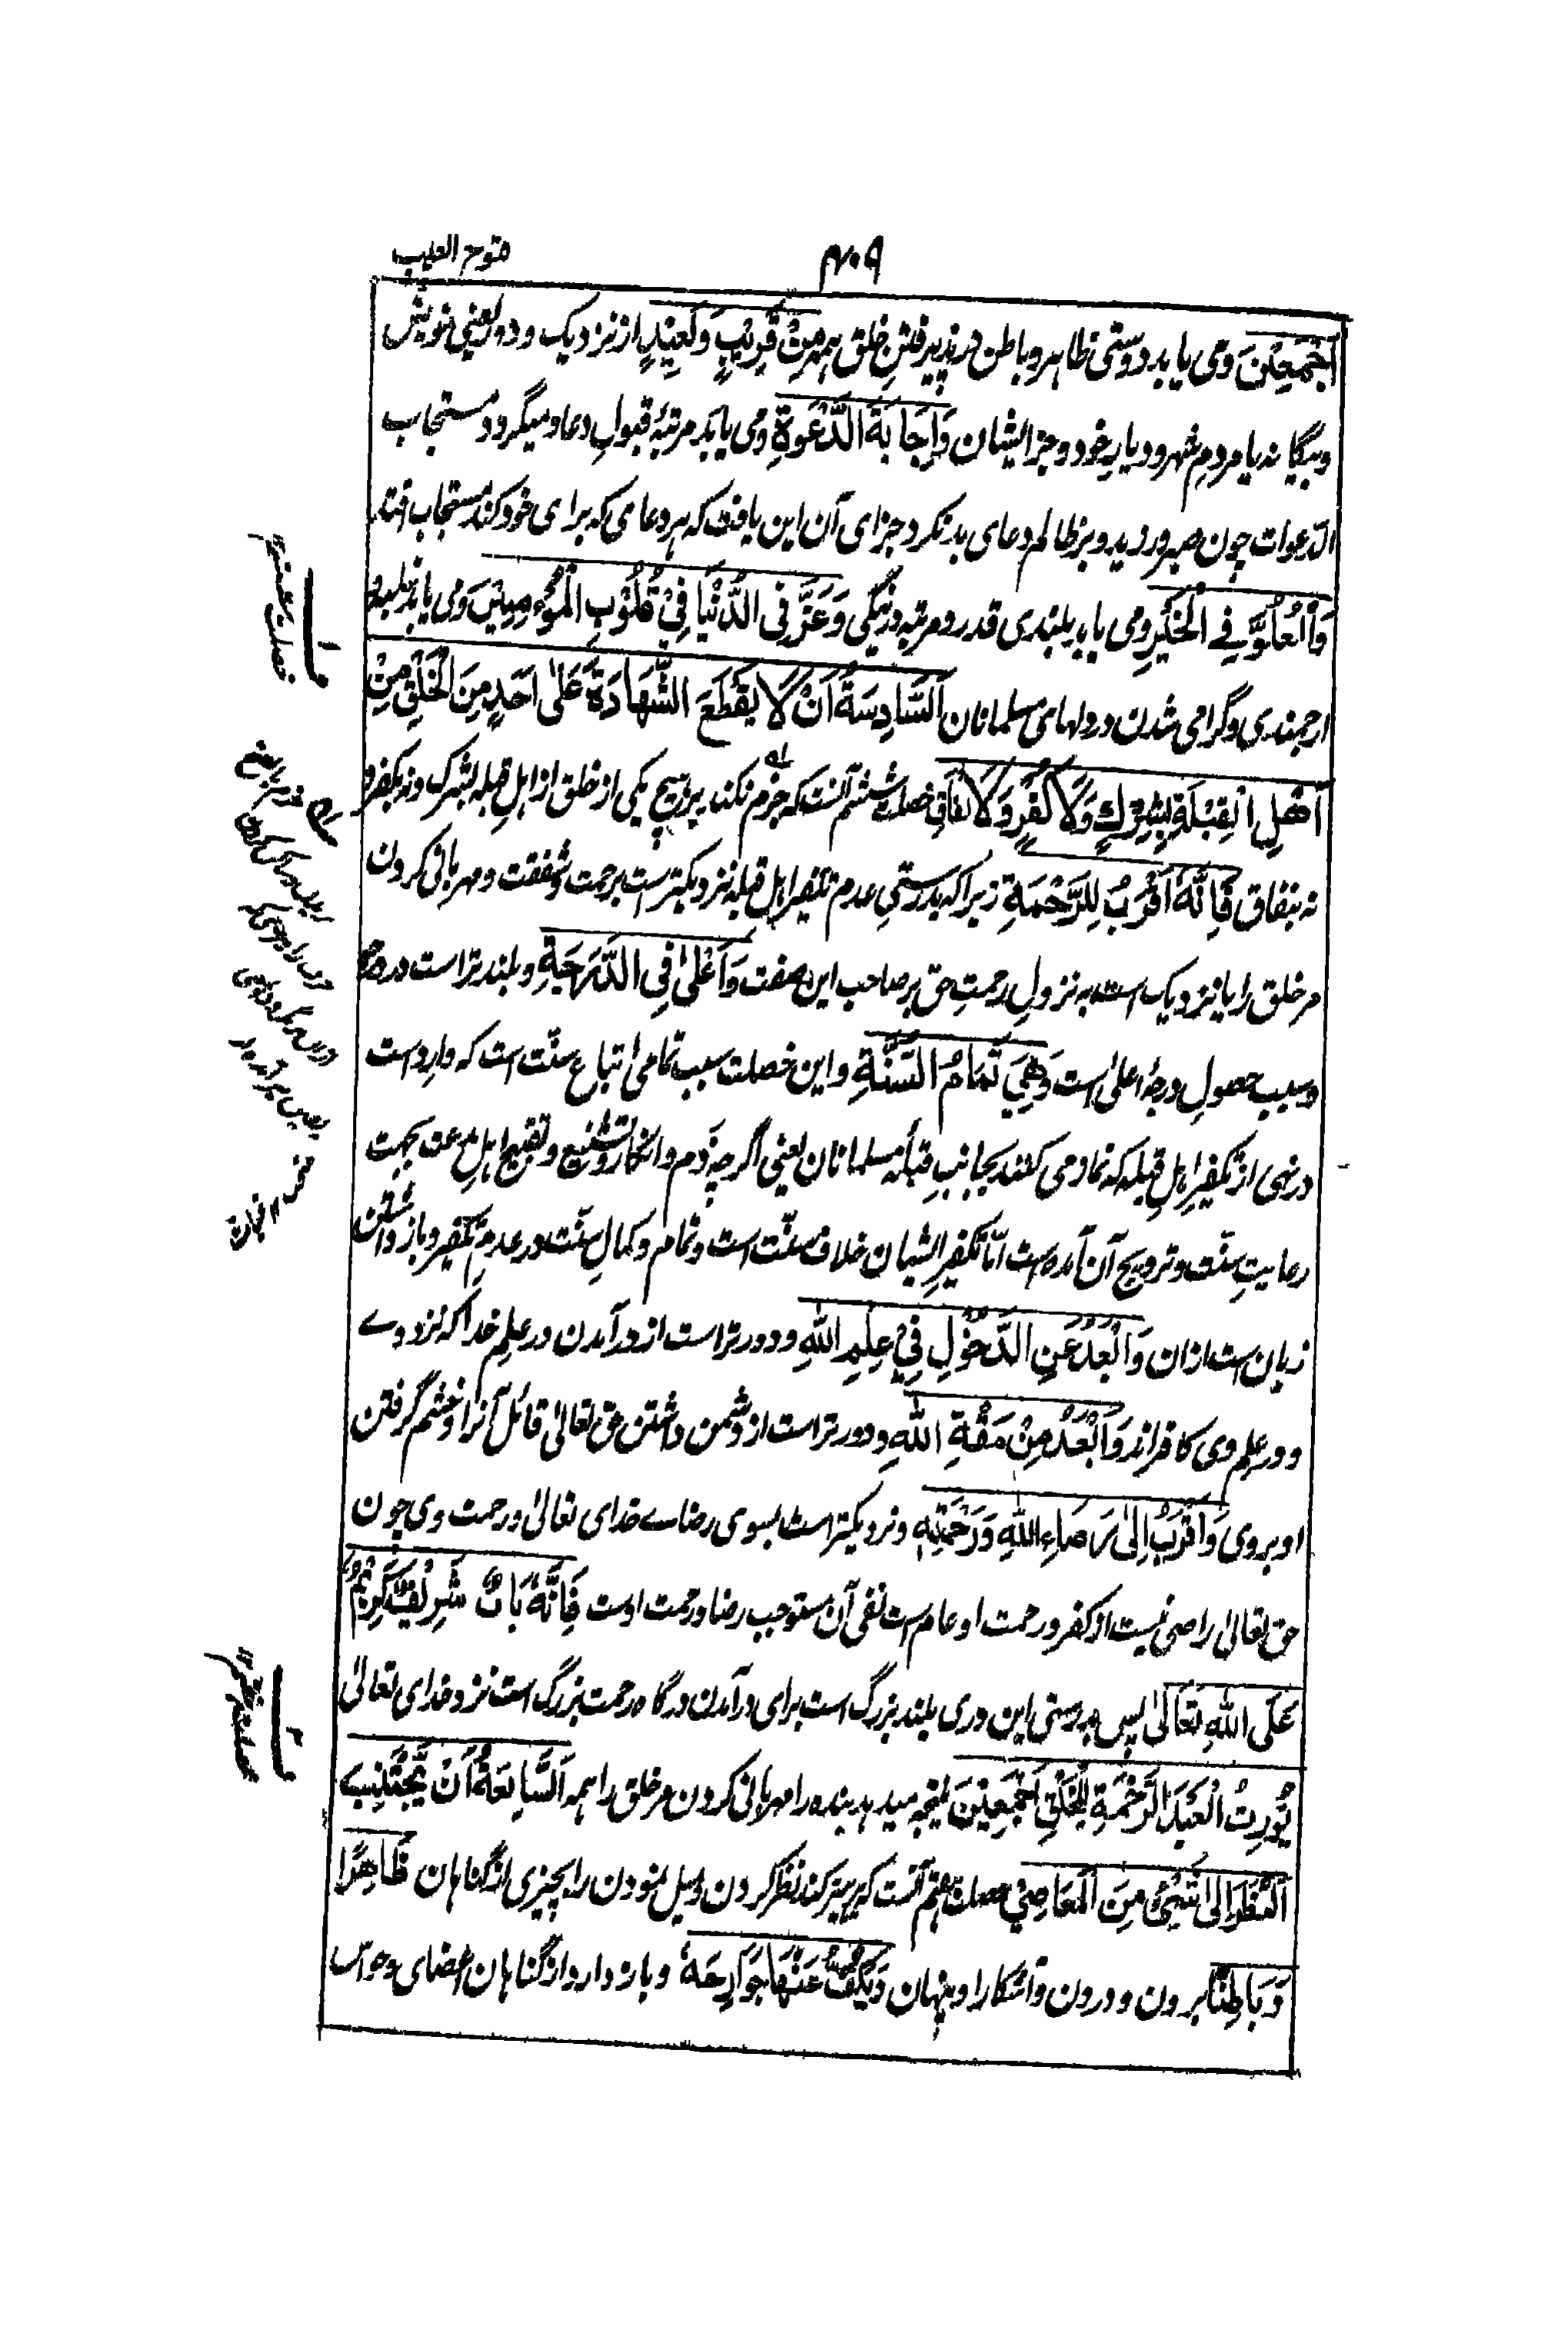 فتوح الغیب
۴۰۹
اَجْمَعِیْنَ ومی یابد دوستی ظاهر و باطن در پذیرفتن خلق همه مِنْ قَرِیْبٍ وَبَعِیْدٍ از نزدیک و دور یعنی خویش
و بیگانه یا مردم شهر و دیار خود و جز ایشان وَاِجَابَةَ الدَّعْوَةِ ومی یابد مرتبۀ قبولِ دعا و میگردد مستجاب
الدعوات چون صبر ورزید و بر ظالم دعای بد نکرد جزای آن این یافت که هر دعای که برای خود کند مستجاب افتد
وَالْعُلُوَّ فِی الْخَیْرِ ومی یابد بلندی قدر و مرتبه در نیکی وَعَزَّ فِی الدُّنْیَا فِیْ قُلُوْبِ الْمُؤْمِنِیْنَ ومی یابد غلبه و
ارجمندی و گرامی شدن در دلهای مسلمانان اَلسَّادِسَةُ اَنْ لَا یَقْطَعَ الشَّهَادَةَ عَلٰی اَحَدٍ مِنَ الْخَلْقِ مِنْ
اَهْلِ الْقِبْلَةِ بِشِرْكٍ وَلَا کُفْرٍ وَلَا نِفَاقٍ خصلت ششم آنست که جزم نکند بر هیچ یکی از خلق از اهل قبله بشرک و نه بکفر و
نه بنفاق فَاِنَّهٗ اَقْرَبُ لِلرَّحْمَةِ زیرا که بدرستی عدم تکفیر اهل قبله نزدیکتر است برحمت و شفقت و مهربانی کردن
مر خلق را یا نزدیک است به نزولِ رحمتِ حق بر صاحب این صفت وَاَعْلٰی فِی الدَّرَجَةِ و بلندتر است در درجه
و سبب حصولِ درجۀ اعلیٰ است وَهِیَ تَمَامُ السُّنَّةِ و این خصلت سبب تمامی اتباع سنّت است که وارد است
در نهی از تکفیرِ اهلِ قبله که نماز می کنند بجانب قبلۀ مسلمانان یعنی اگرچه ذم و انکار و تشنیع و تقبیح اهل بدعت بجهت
رعایتِ سنّت و ترویج آن آمده است امّا تکفیرِ ایشان خلاف سنّت است و تمام و کمالِ سنّت در عدمِ تکفیر و بازداشتن
زبان است ازان وَاَبْعَدُ عَنِ الدُّخُوْلِ فِیْ عِلْمِ اللّٰهِ و دورتر است از درآمدن در علمِ خدا که نزد وے
و در علم وی کافراند وَاَبْعَدُ مِنْ مَقْتِ اللّٰهِ و دورتر است از دشمن داشتن حق تعالیٰ قائل آنرا و خشم گرفتن
او بر وی وَاَقْرَبُ اِلٰی رَضَاءِ اللّٰهِ وَرَحْمَتِهٖ و نزدیکتر است بسوی رضاے خدای تعالیٰ و رحمت وی چون
حق تعالیٰ راضی نیست از کفر و رحمت او عام است نفی آن مستوجب رضا و رحمت اوست فَاِنَّهٗ بَابٌ شَرِیْفٌ کَرِیْمٌ
عَلَی اللّٰهِ تَعَالٰی پس بدرستی این دری بلند بزرگ است برای درآمدن درگاه رحمت بزرگ است نزد خدای تعالیٰ
یُوْرِثُ الْعَبْدَ الرَّحْمَةَ لِلْخَلْقِ اَجْمَعِیْنَ نتیجه میدهد بنده را مهربانی کردن مر خلق را همه اَلسَّابِعَةُ اَنْ یَّجْتَنِبَ
النَّظَرَ اِلٰی شَیْءٍ مِنَ الْمَعَاصِیْ خصلت هفتم آنست که پرهیز کند نظر کردن و میل نمودن را بچیزی از گناهان ظَاهِرًا
وَبَاطِنًا برون و درون و آشکارا و پنهان وَیَکُفَّ عَنْهَا جَوَارِحَهٗ و باز دارد از گناهان اعضای و حواس
خصلت ششم
خصلت هفتم